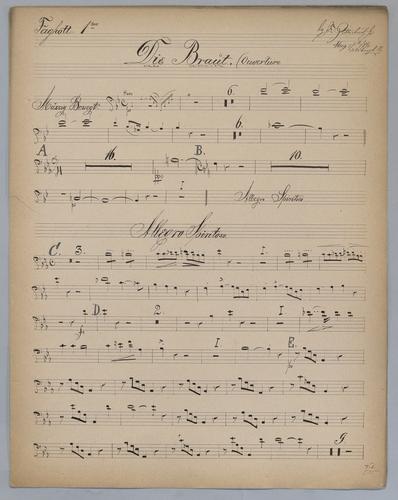 Fagott. 1ter
Die Braut. (Ouverture
Mässig Bewegt.
6.
6.
A
16.
B.
10.
pp
1
Allegro Spiritoso
Allegro Spiritoso
C.
3.
1.
D.
2.
1
1
f
1
E.
9